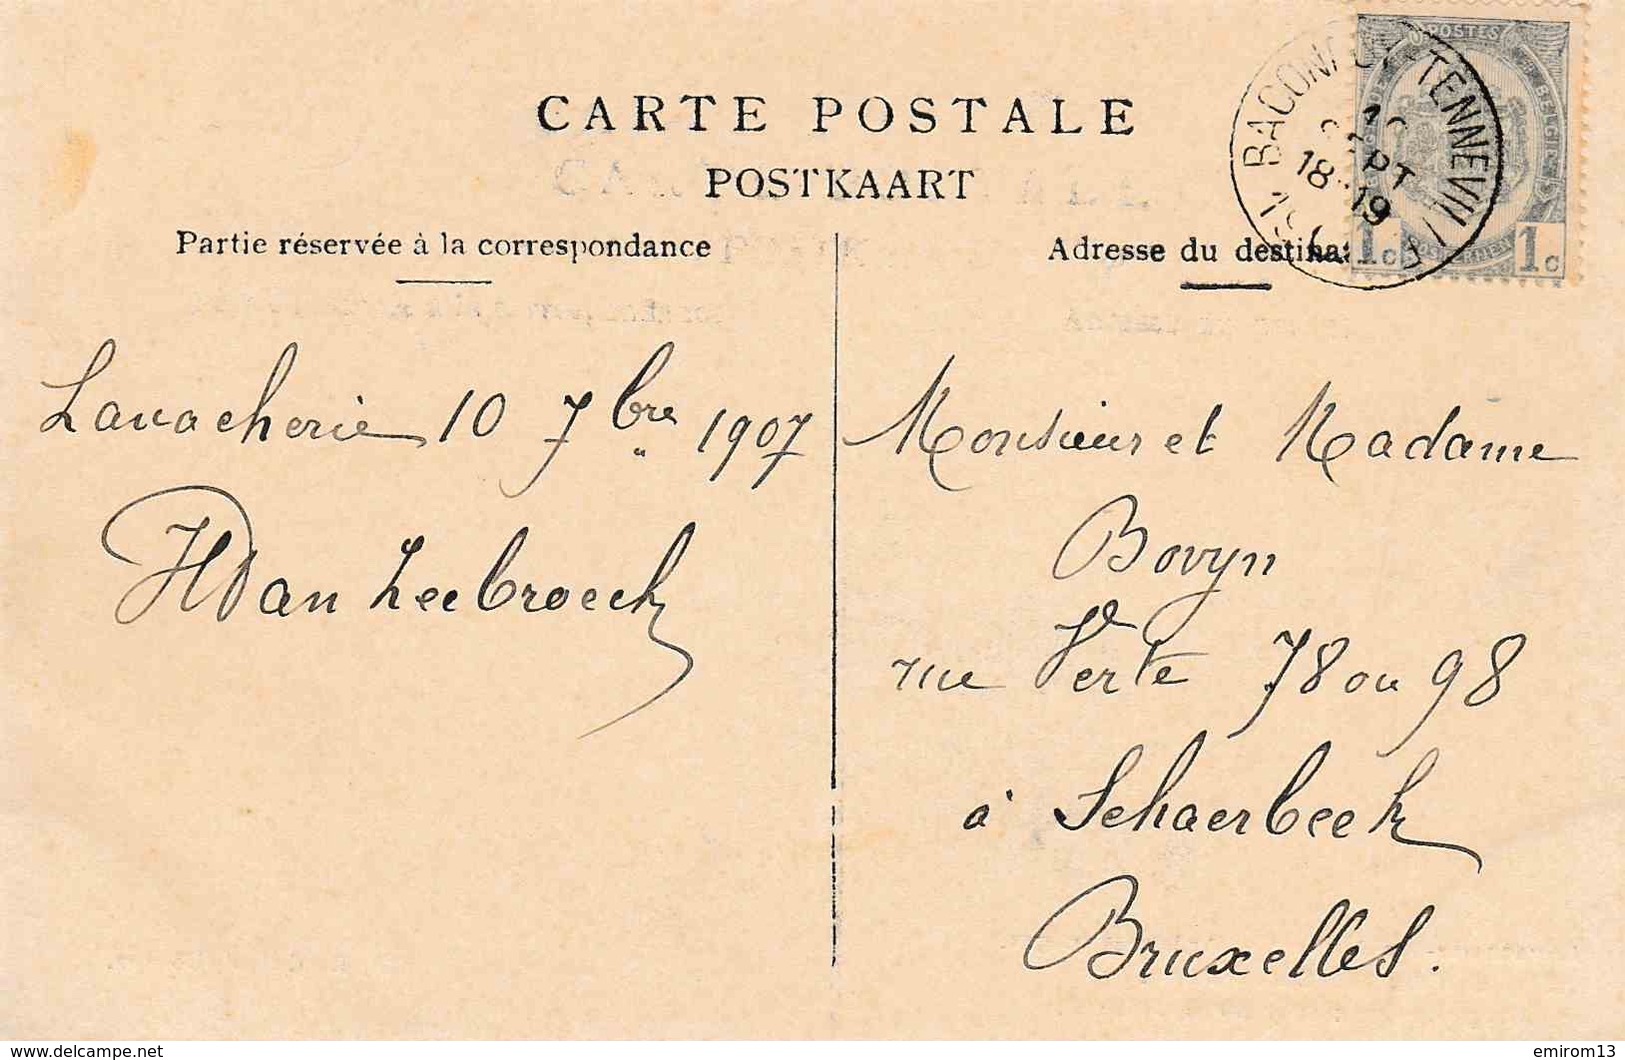 CARTE POSTALE
POSTKAART
Partie réservée à la correspondance
Adresse du destina
BACONFOY-TENNEVILLE
10
SEPT
18-19
1907
POSTES
BELGIË
1c 1c
Lavacherie 10 7bre 1907
HVan Leebroeck
Monsieur et Madame
Bovyn
rue Verte 78 ou 98
à Schaerbeek
Bruxelles.
www.delcampe.net
emirom13